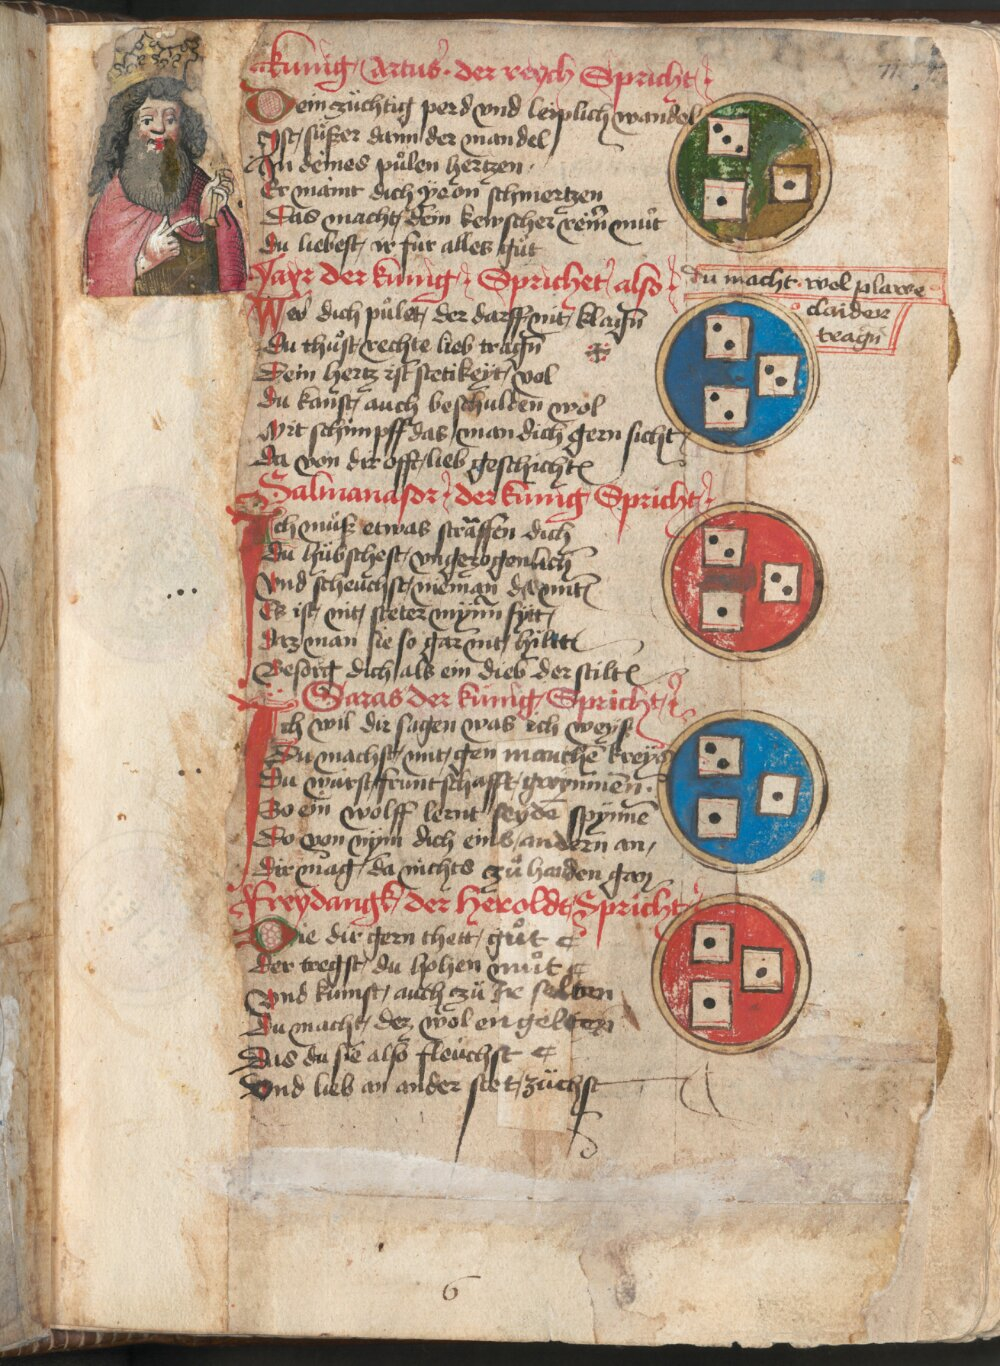 Kunig Artus der reych Spricht
Dein züchtig perd vnd leiplich wandel
Ist süßer dann der mandel
In deines pulen hertzen
Er maint dich yeon schmertzen
Das macht dein kewscher rein mut
Du liebest ir fur alles gut
Jayr der kunig Sprichet also
du macht wol plawe
claider
tragn
Wer dich pulet der darff nit klagn
Du thust rechte lieb tragn
Dein hertz ist stetikeyt vol
Du kanst auch beschulden wol
Mit schimpff das man dich gern sicht
Da von dir offt lieb geschicht
Salmanasar der kunig Spricht
Ich muß etwas straffen dich
Du hubschest vngezogenlich
Vnd scheuchst nieman da mit
Es ist nit steter mynn sytt
Daz man sie so gar nit hillt
Besorg dich als ein dieb der stilt
Saras der kunig Spricht
Ich wil dir sagen was ich weyß
Du machst mit gen manchen kreyß
Du warst fruntschafft gewynnen
So ein wolff lernt seyden spynnen
Do von nym dich eins andern an
Dir mag da nichts zu handen gan
Freydangk der Heroldt Spricht
Die dir gern thett gut
Der tregst du hohen mut
Vnd kumst auch zu Ir selten
Du macht dez wol engelten
Das du sie also fleuchst
Vnd lieb an ander stet züchst
6